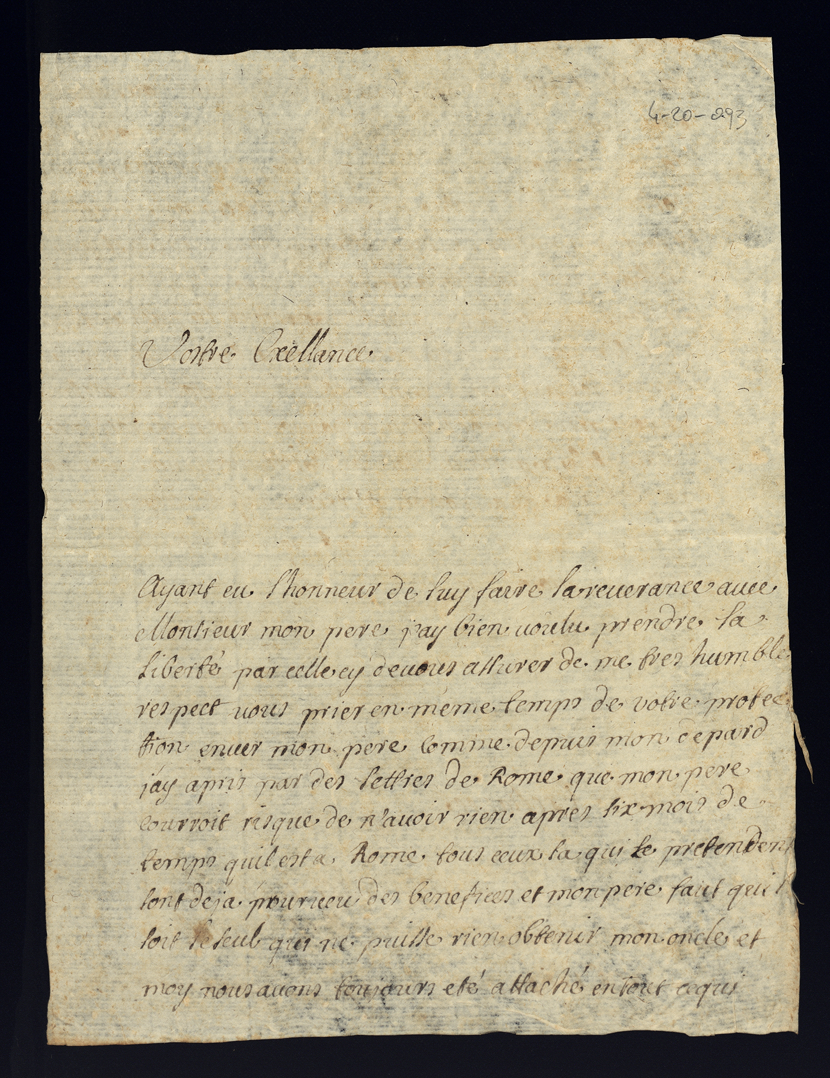 4-20-293
Vostre Exellance
Ayant eu l'honneur de luy faire la reuerance auec
Monsieur mon pere j'ay bien voulu prendre la
liberté par celle cy de vous assurer de me tres humble
respect vous prier en méme temps de votre protec
tion enuer mon pere comme depuis mon depard
j'ay apris par des lettres de Rome que mon pere
courroit risque de n'avoir rien aprés six mois de
temps quil est a Rome tous ceux la qui le pretendent
sont deja pourueu des benefices et mon pere faut qu'il
soit le seul qui ne puisse rien obtenir mon oncle et
moy nous auons toujours eté attaché en tout ce qui